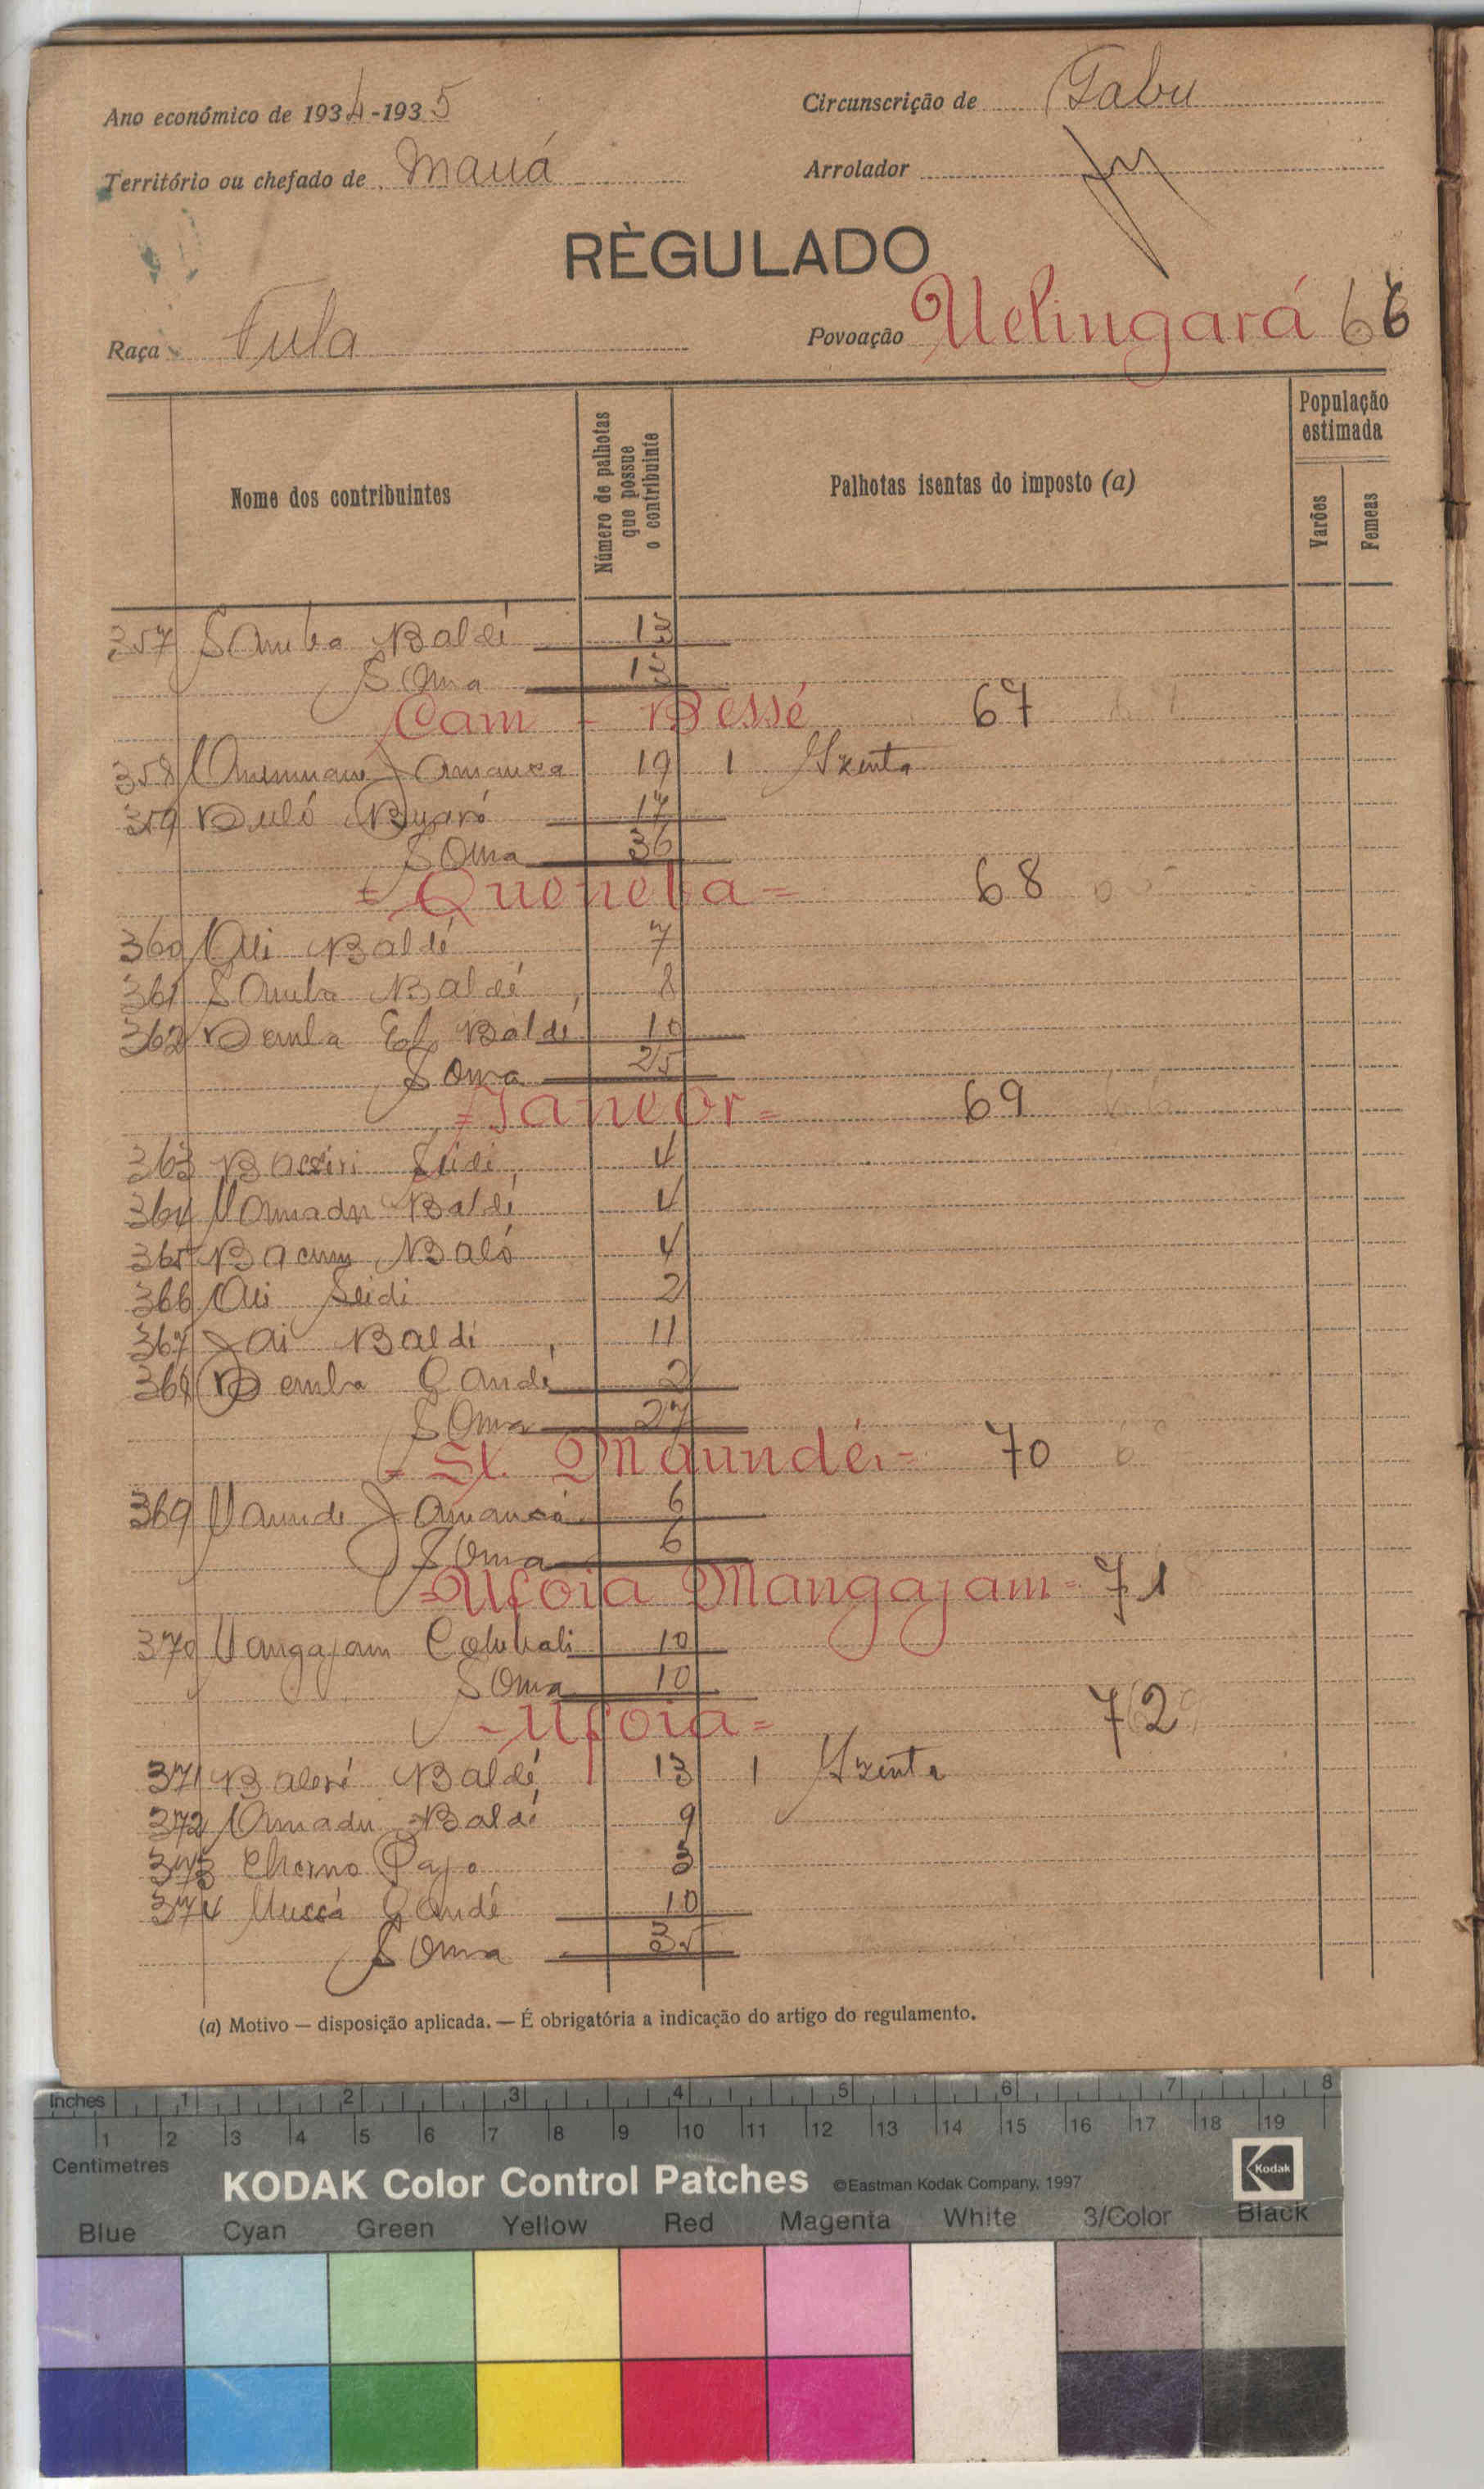 Ano económico de 1934-1935
Circunscrição de Gabu
Território ou chefado de Mauá
Arrolador
RÈGULADO
Raça Fula
Povoação Uelingará 66
Nome dos contribuintes
Número de palhotas que possue o contribuinte
Palhotas isentas do imposto (a)
População estimada
Varões
Femeas
357 Samba Baldé 13
Soma 13
Cam - Bessé 67
358 Jamanca 19 1 Izenta
359 Buaró 17
Soma 36
= Queneba = 68
360 Ali Baldé 7
361 Samba Baldé 8
362 Demba Baldé 10
Soma 25
= Jancor = 69
363 Bassiri Seidi 4
364 Mamadu Baldé 4
365 Baló 4
366 Ali Seidi 2
367 Jai Baldé 11
368 Demba Candé 2
Soma 27
= St. Maundé = 70
369 Maunde Jamanca 6
Soma 6
= Ufoia Mangajam = 71
370 Mangajam Colubali 10
Soma 10
- Ufoia = 72
371 Baldé 13 1 Izenta
372 Amadu Baldé 9
373 Cherno 3
374 Mussá Candé 10
Soma 35
(a) Motivo — disposição aplicada. — É obrigatória a indicação do artigo do regulamento.
Inches 1 2 3 4 5 6 7 8
1 2 3 4 5 6 7 8 9 10 11 12 13 14 15 16 17 18 19
Centimetres
KODAK Color Control Patches ©Eastman Kodak Company, 1997 Kodak
Blue Cyan Green Yellow Red Magenta White 3/Color Black